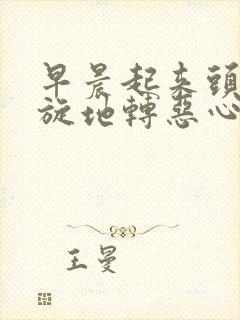 早晨起来頭
旋地轉惡心
王曼